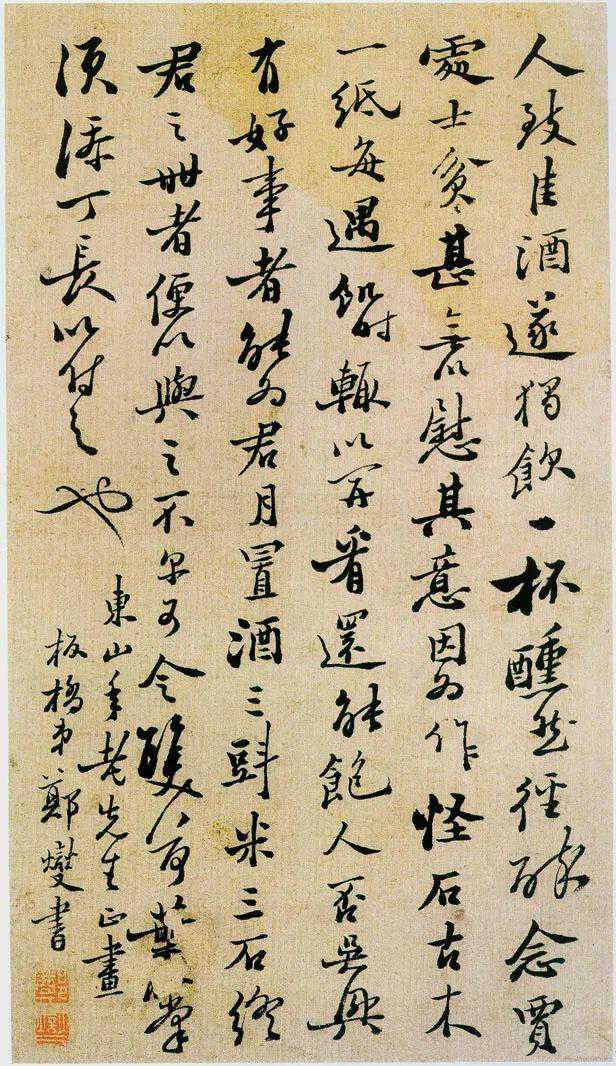 人致佳酒遂獨飲一杯醺然徑醉念賈
處士貧甚无以慰其意因為作怪石古木
一紙每遇飢時輒以開看還能飽人否吳興
有好事者能為君月置酒三㪷米三石終
君之世者便以與之不尔可令雙荷葉掌
須添丁長以付之也
東山年老先生正畫
板橋弟鄭燮書